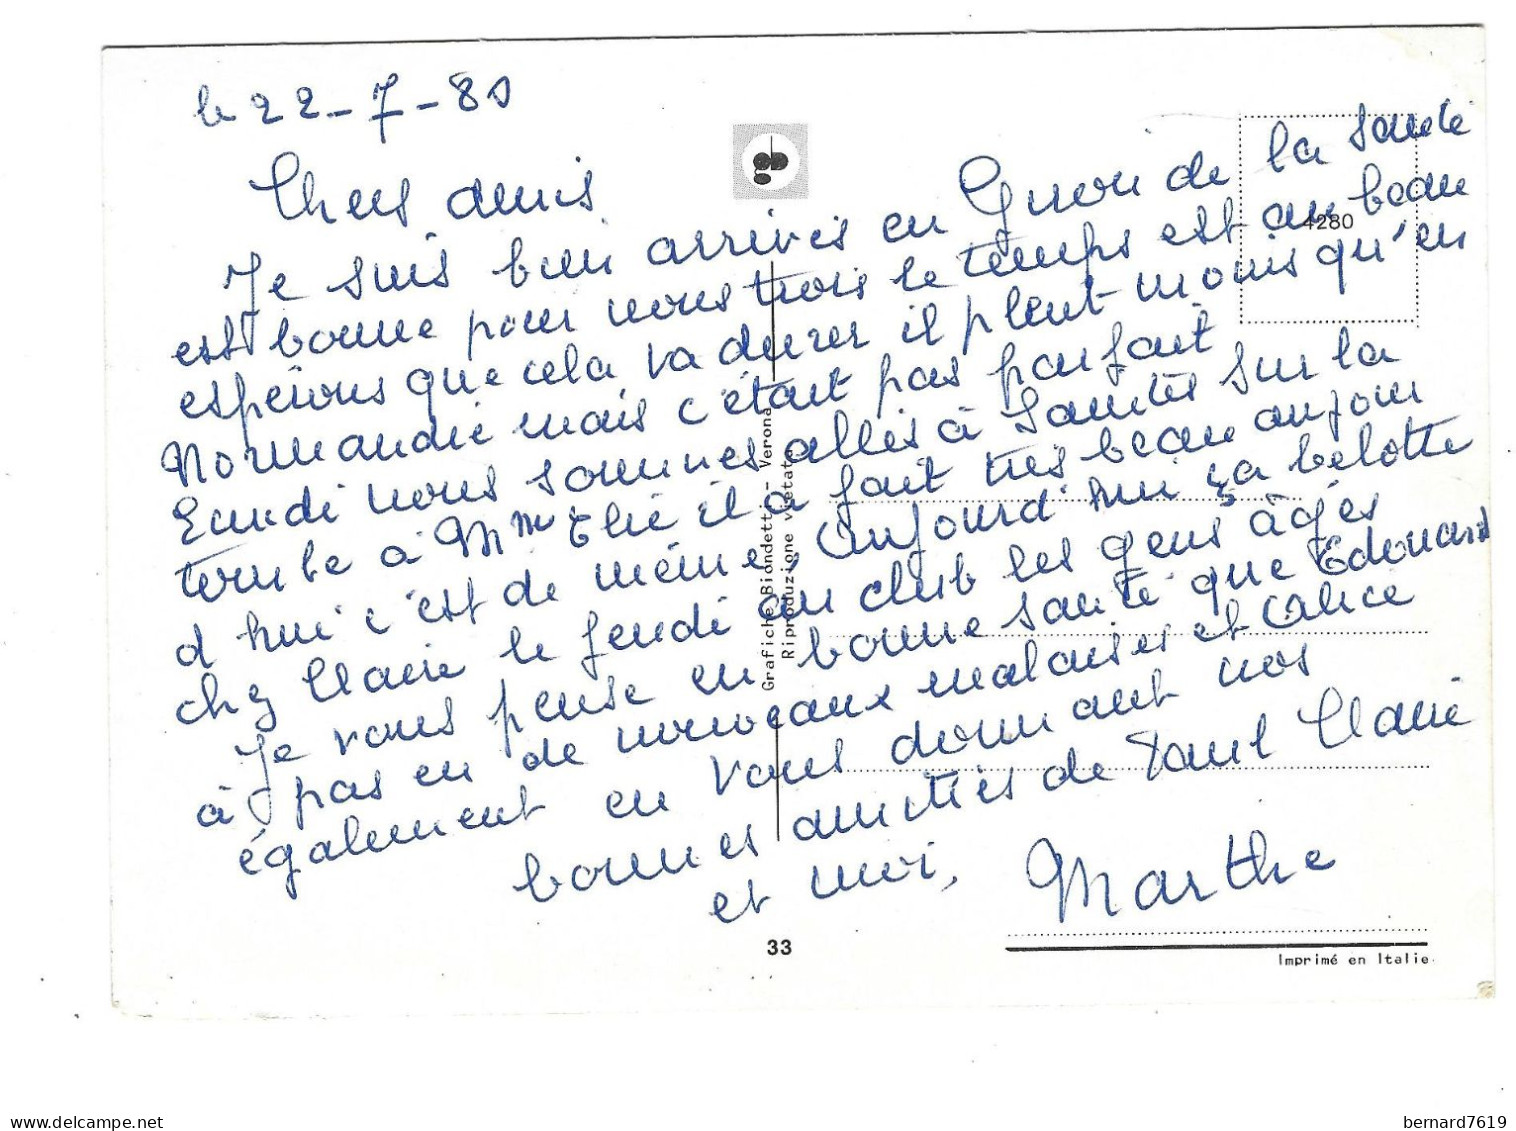 le 22-7-80
Chers amis
Je suis bien arrivés en de la santé
est bonne pour nous trois le temps est au beau
espérons que cela va durer il pleut moins qu'en
Normandie mais c'était pas parfait
nous sommes allés à sur la
tombe à Mme Elie il a fait très beau aujour
d'hui c'est de même, Aujourd'hui ça belotte
chez Claire le jeudi au club les gens âgés
Je vous pense en bonne santé que Edouard
à pas eu de nouveaux malaises et Calice
également en vous donnant nos
bonnes amitiés de Paul Claire
et moi, Marthe
4280
Grafiche Biondetti - Verona
Riproduzione vietata
33
Imprimé en Italie
bernard7619